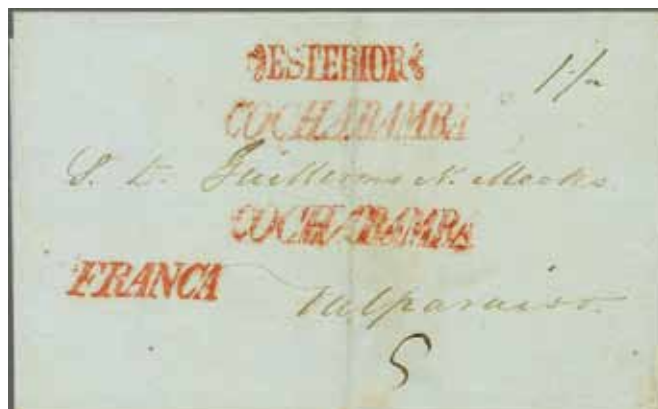 ESTERIOR
COCHABAMBA
S. D. Guillermo N.
COCHABAMBA
FRANCA
Valparaiso.
5